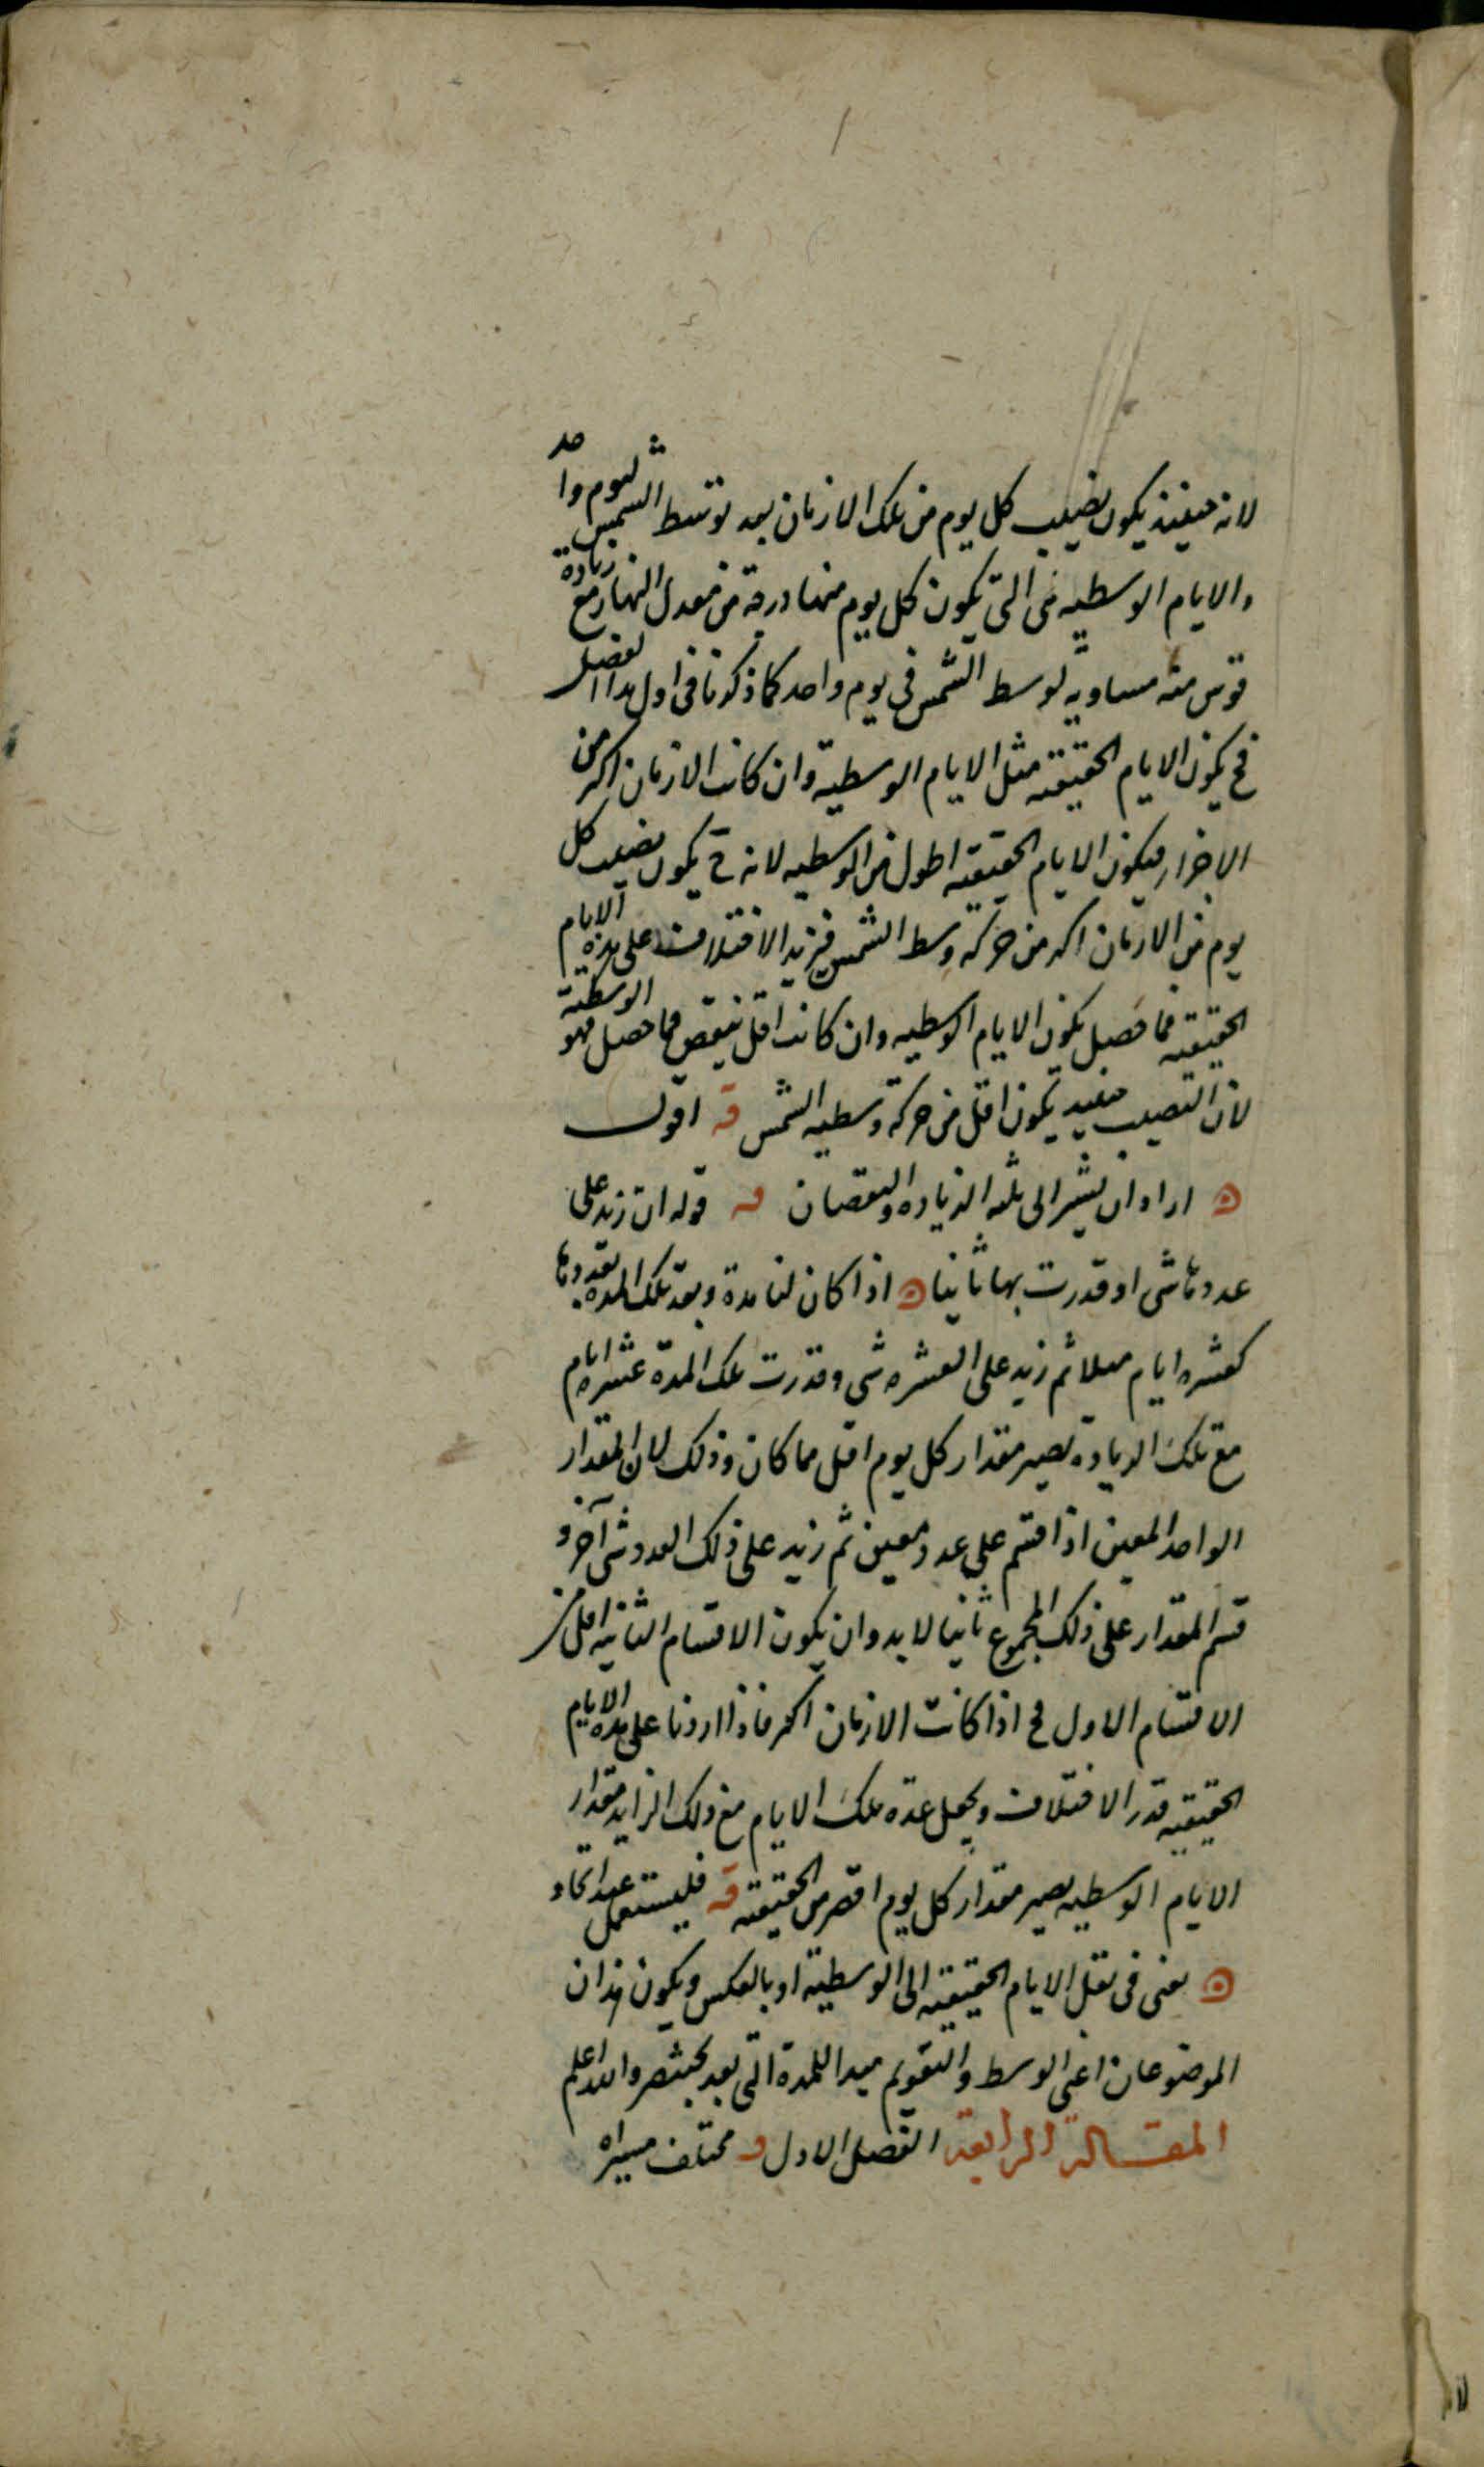 لانه حينئذ يكون نصيب كل يوم من تلك الازمان بعد توسط الشمس ليوم واحد
والايام الوسطيه هى التى يكون كل يوم منها درجة من معدل النهار مع زيادة
قوس منه مساوية لوسط الشمس فى يوم واحد كما ذكرنا فى اول هذا الفصل
فح يكون الايام الحقيقيه مثل الايام الوسطية وان كانت الازمان اكثر من
الاجزاء فيكون الايام الحقيقيه اطول من الوسطيه لانه ح يكون نصيب كل
يوم من الازمان اكثر من حركة وسط الشمس فيزيد الاختلاف على هذه الايام
الحقيقيه فما حصل يكون الايام الوسطيه وان كانت اقل ينقص فما حصل فهو الوسطية
لان النصيب حينئذ يكون اقل من حركة وسطيه الشمس قه اقول
اراد ان يشير الى لميه الزياده والنقصان قه قوله ان زيد على
عددها شى او قدرت بها ثانيا اذا كان لنا مدة وبعد تلك المدة بعدد ما
كعشره ايام مثلا ثم زيد على العشره شى وقدرت تلك المدة عشره ايام
مع تلك الزيادة يصير مقدار كل يوم اقل مما كان وذلك لان المقدار
الواحد المعين اذا قسم على عدد معين ثم زيد على ذلك العدد شى آخر و
قسم المقدار على ذلك المجموع ثانيا لابد وان يكون الاقسام الثانيه اقل من
الاقسام الاول فح اذا كانت الازمان اكثر فاذا ازدنا على هذه الايام
الحقيقيه قدر الاختلاف ويجعل عدة تلك الايام مع ذلك الزايد مقدار
الايام الوسطيه يصير مقدار كل يوم اقصر من الحقيقيه قه فليستعمل عند اتحاد
يعنى فى نقل الايام الحقيقيه الى الوسطية او بالعكس ويكون هذان
الموضوعان اعنى الوسط والتقويم مبدا للمدة التى بعد بختنصر والله اعلم
المقالة الرابعة الفصل الاول قه مختلف مسيراه